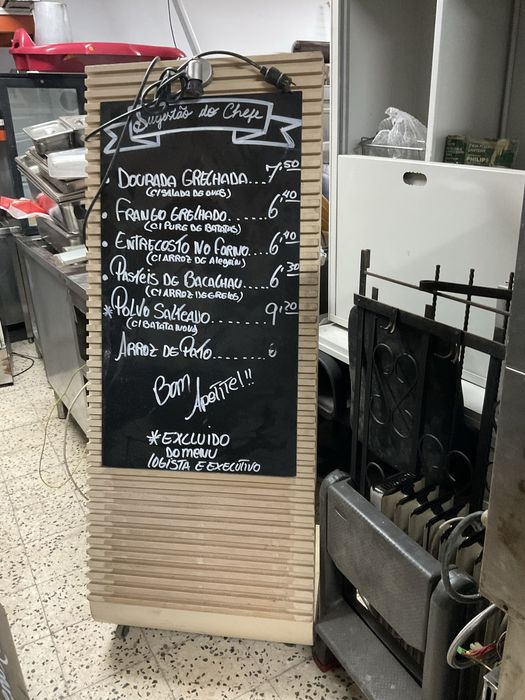 Sugestão do Chefe
• DOURADA GRELHADA....7,50
(C/ SALADA DE OVAS)
• FRANGO GRELHADO......6,40
(C/ PURE DE BATATAS)
• ENTRECOSTO NO FORNO...6,40
(C/ ARROZ DE ALECRIM)
• PASTÉIS DE BACALHAU...6,30
(C/ ARROZ DE GRELOS)
*POLVO SALTEADO........9,20
(C/ BATATA NOVA)
ARROZ DE PATO........
Bom
Apetite!!
*EXCLUIDO
DO MENU
LOGISTA E EXECUTIVO
PHILIPS